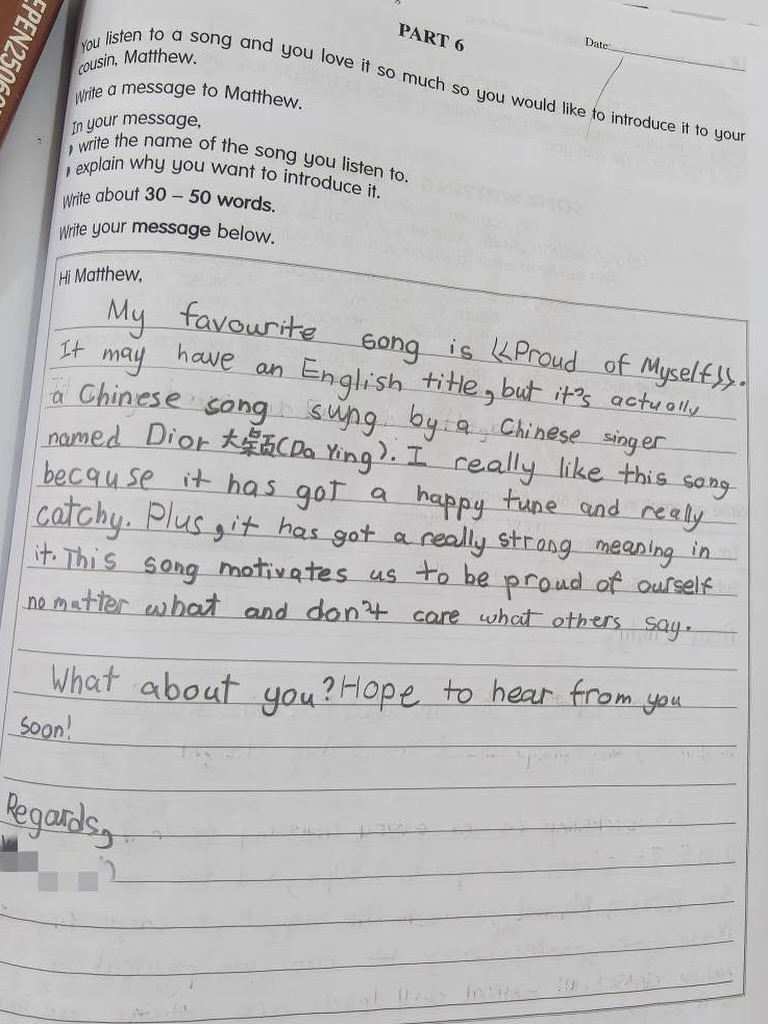 EPEN2506
PART 6
Date:
You listen to a song and you love it so much so you would like to introduce it to your
cousin, Matthew.
Write a message to Matthew.
In your message,
write the name of the song you listen to.
explain why you want to introduce it.
Write about 30 – 50 words.
Write your message below.
Hi Matthew,
My favourite song is 《Proud of Myself》.
It may have an English title, but it's actually
a Chinese song sung by a Chinese singer
named Dior 大颖 (Da Ying). I really like this song
because it has got a happy tune and really
catchy. Plus, it has got a really strong meaning in
it. This song motivates us to be proud of ourself
no matter what and don't care what others say.
What about you? Hope to hear from you
soon!
Regards,